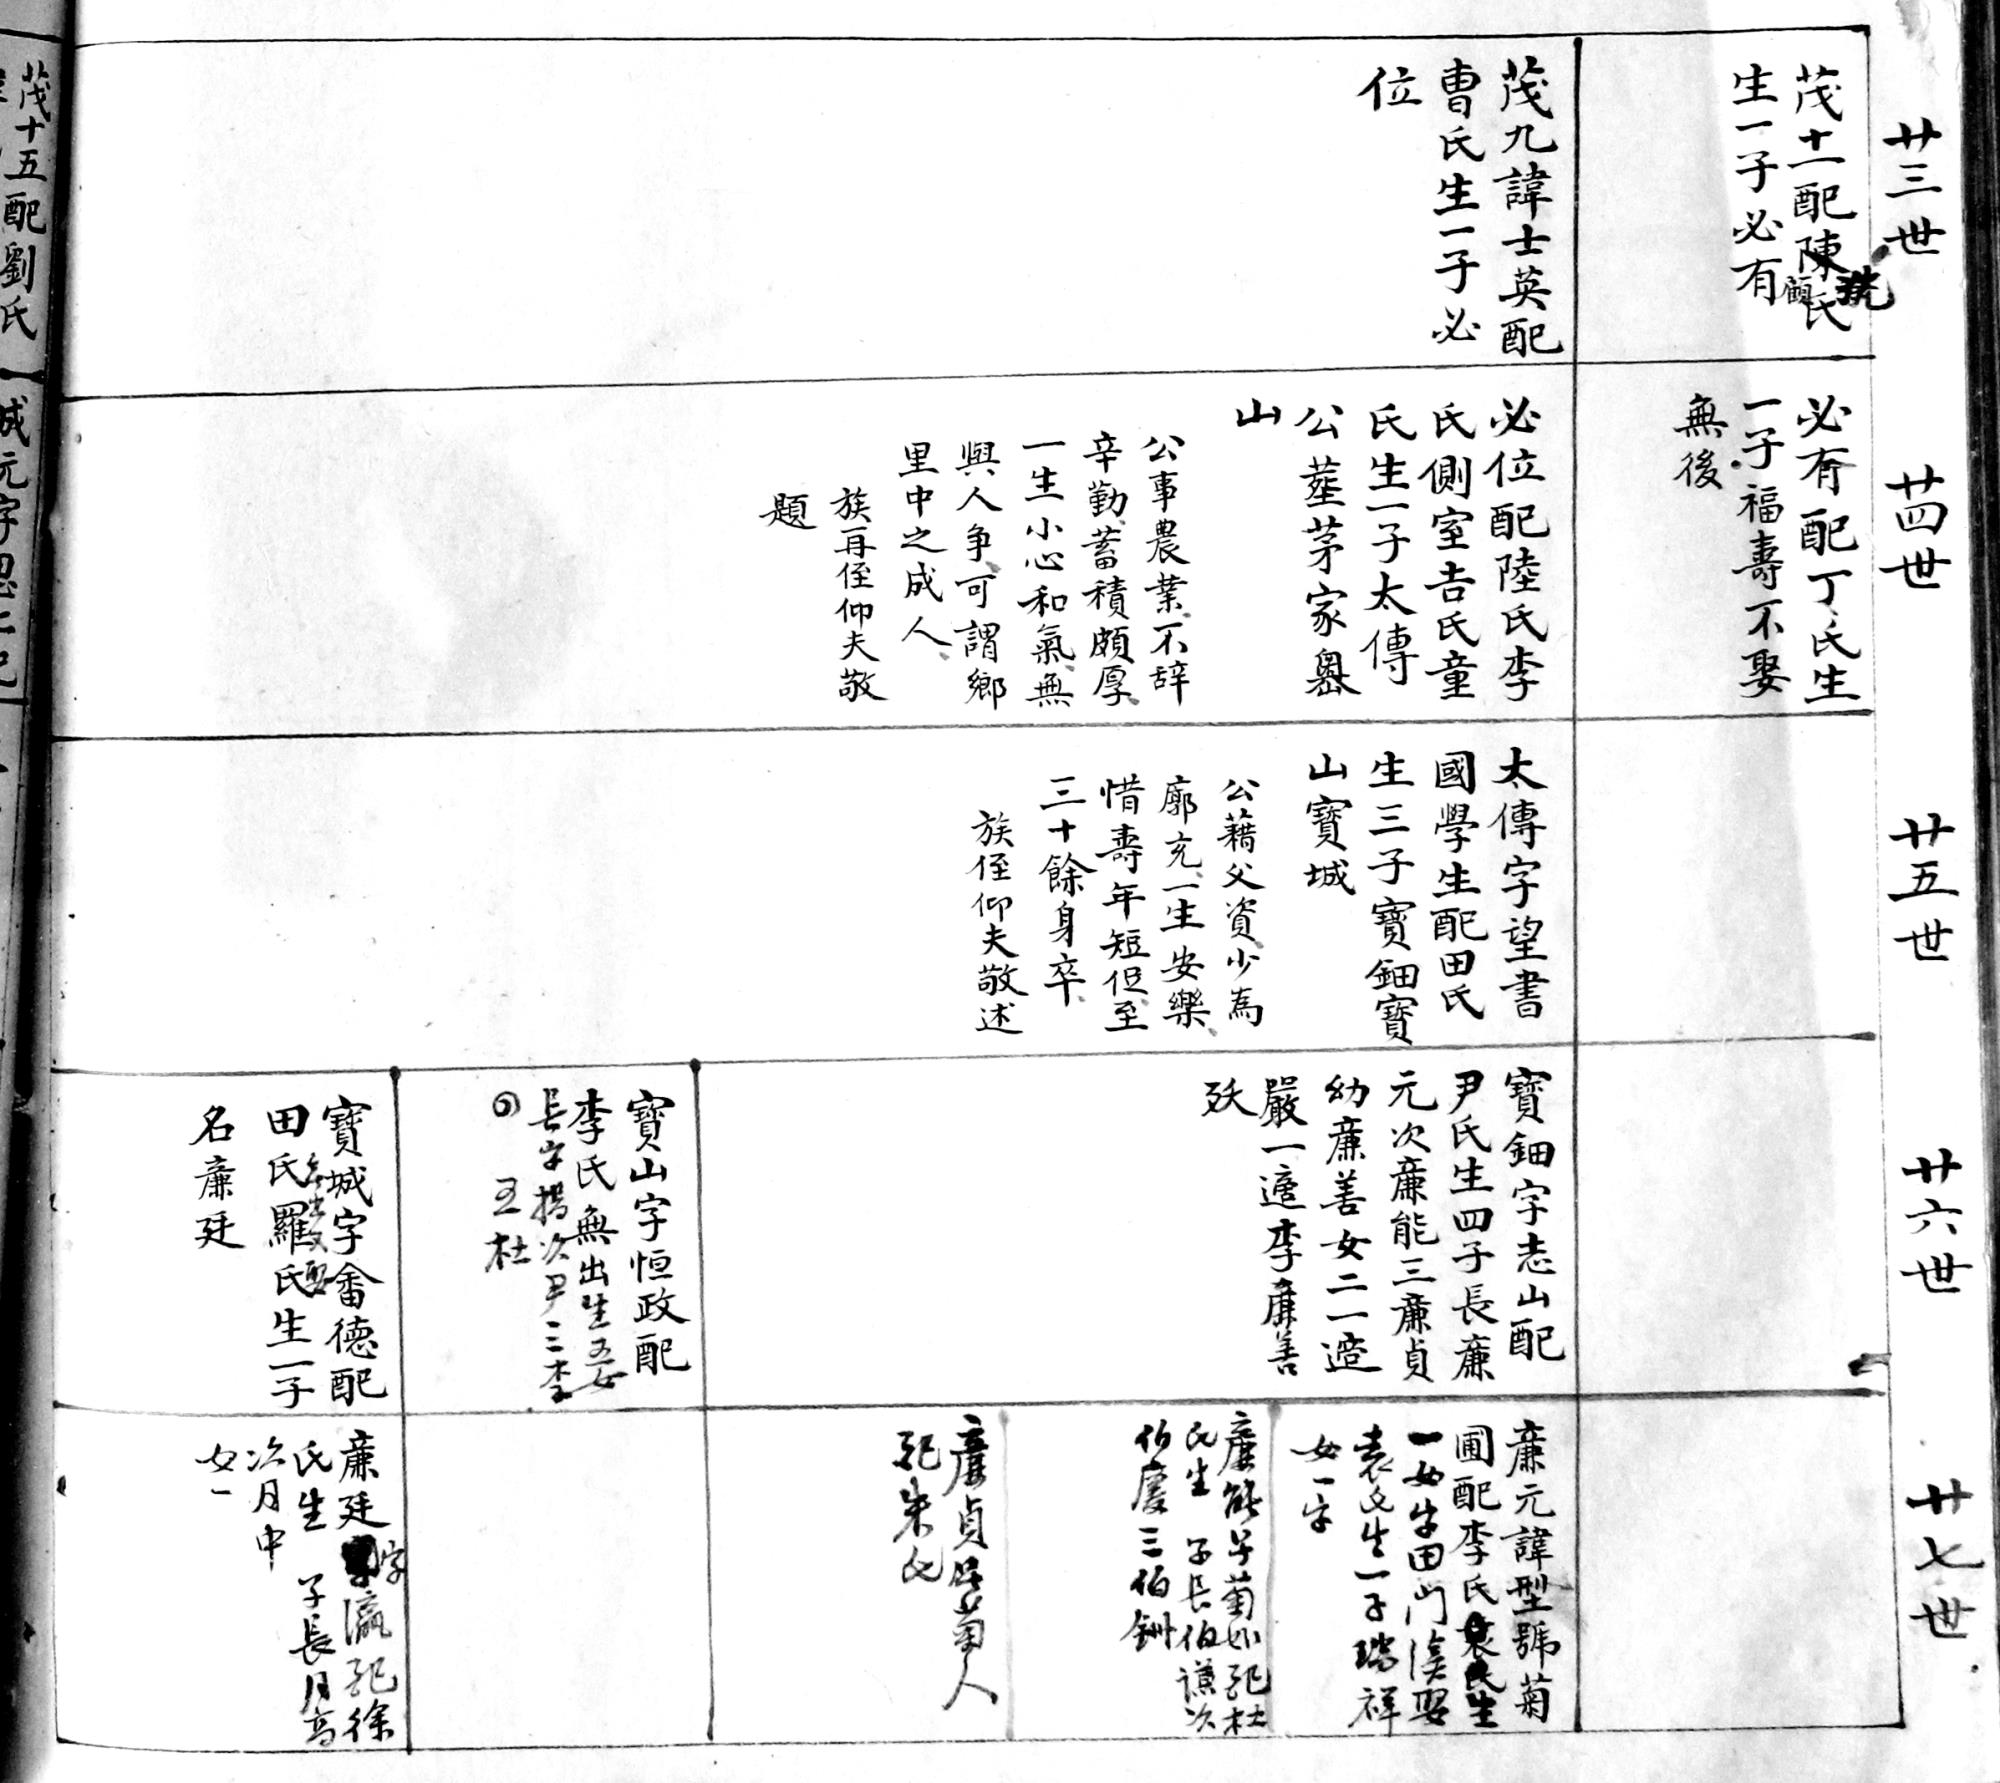 廿三世
茂十一配陳氏
生一子必有
茂九諱士英配
曹氏生一子必
位
廿四世
必有配丁氏生
一子福壽不娶
無後
必位配陸氏李
氏側室吉氏童
氏生一子太傳
公塟茅家嶴
山
公事農業、不辞
辛勤、蓄積頗厚、
一生小心和氣、無
與人争、可謂鄉
里中之成人、
族再侄仰夫敬
題
廿五世
太傳字望書
國學生配田氏
生三子寶鈿寶
山寶城
公藉父資、少為
廓充、一生安樂、
惜壽年短促、至
三十餘身卒、
族侄仰夫敬述
廿六世
寶鈿字志山配
尹氏生四子長亷
元次亷能三亷貞
幼亷善女二一適
嚴一適李亷善
殀
寶山字恒政配
李氏無出生五女
長字楊次尹三李
四 王杜
寶城字畬德配
田氏羅氏生一子
名亷廷
廿七世
亷元諱型號菊
圃配李氏生
一女字田門後娶
袁氏生一子瑞祥
女一字
亷能字菊如配杜
氏生 子長伯謙次
伯慶三伯釧
亷貞字菊人
配朱氏
亷廷字瀛配徐
氏生 子長月高
次月中
女一
茂十五配劉氏